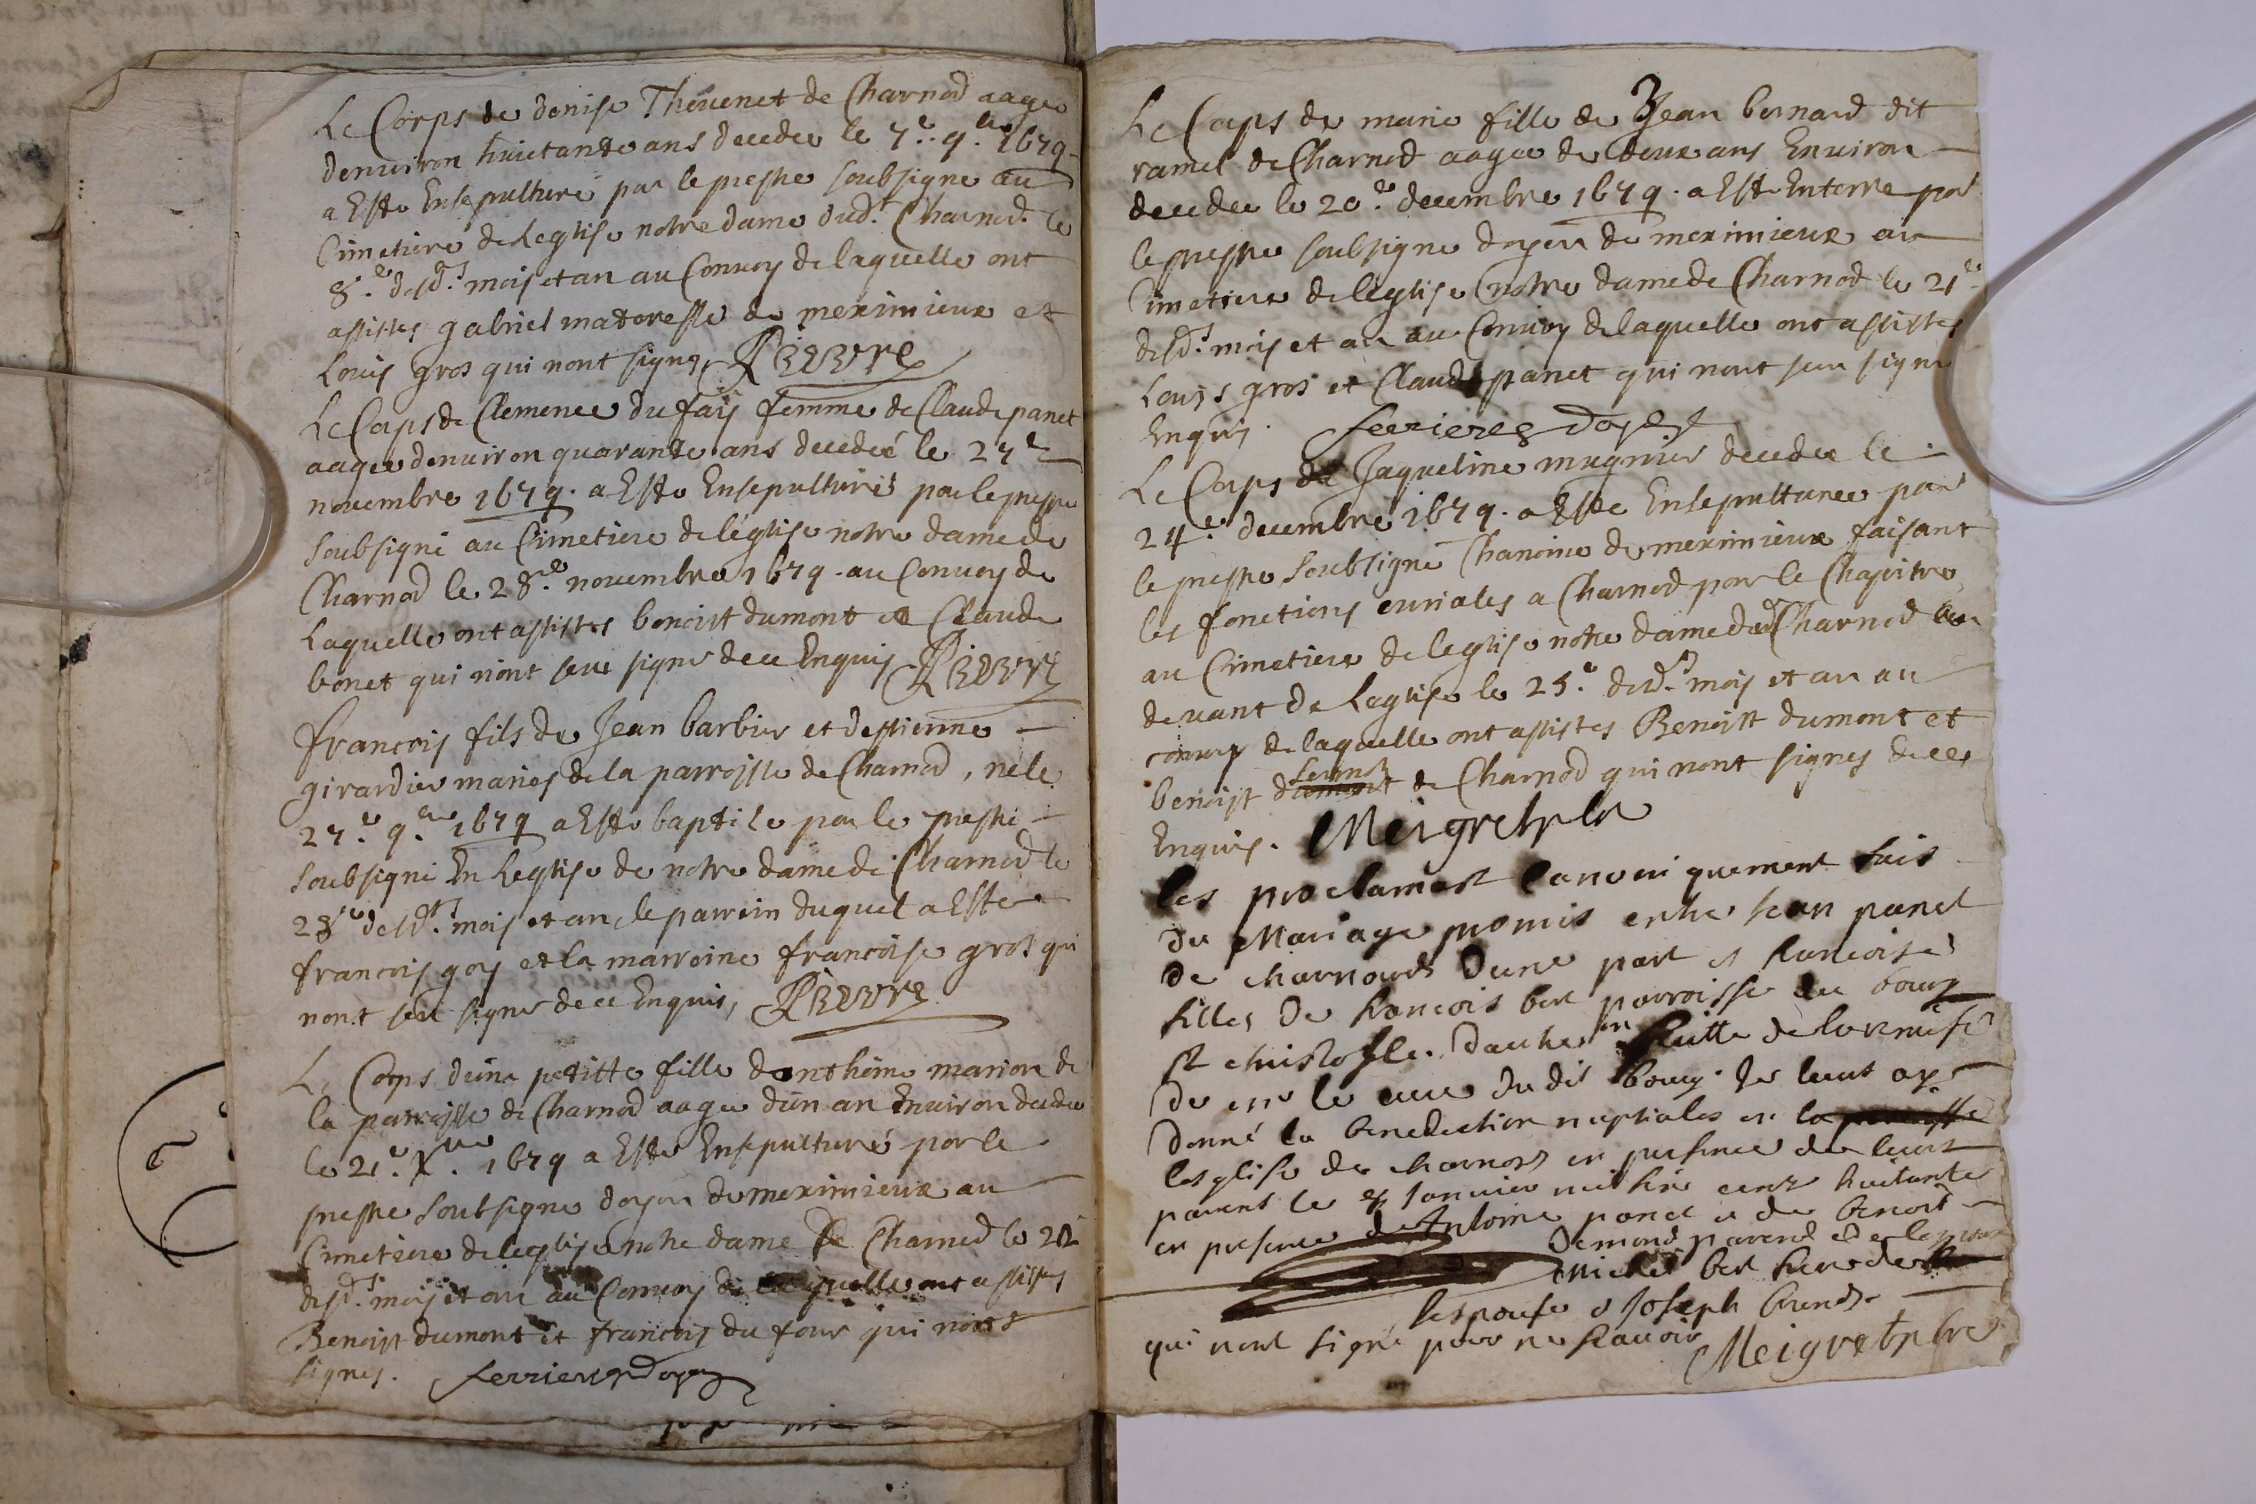 Le Corps de denise Thevenet de Charnod aagee
denuiron huictante ans decedee le 7.e 9.bre 1679
a Este Ensepulturé par le prestre soubsigne au
Cimetiere de Leglise notre dame dud.t Charnod le
8.e desd.ts mois et an au Convoy de laquelle ont
assistes gabriel materesse de meximieux et
Louis gros qui nont signe,
Le Corps de Clemence du fay femme de Claude panet
aagee denuiron quarante ans decedeé le 27e
novembre 1679. a Este Ensepulturés par le prestre
soubsigné au Cimetiere de léglise notre dame de
Charnod le 28.e novembre 1679. au Convoy de
Laquelle ont assistes benoist dumont et Claude
bonet qui nont sceu signe dece Enquis
francois fils de Jean barbier et destienne
girardier maries de la parroisse de Charnod, né le
27.e 9.bre 1679 a Este baptise par le prestre
soubsigné En Leglise de notre dame de Charnod le
28e desd.ts mois et an, le parrein duquel a Este
francois goy et la marreine francoise gros qui
nont seu signe dece Enquis,
Le Corps dune petitte fille danthoine marion de
la parroisse de Charnod aagee dun an Enuiron decedee
le 21.e X.bre 1679 a Este Ensepulturé par le
prestre soubsigne doyen de meximieux au
Cimetiere de leglise notre dame de Charnod le 22
desd.ts mois et an au Convoy de laquelle ont assistes
Benoist dumont et francois du four qui nont
signes. ferrieres doyen
Le Corps de marie fille de Jean bernard dit
ramel de Charnod aagee de deux ans Enuiron
decedee le 20.e decembre 1679. a Este Enterre par
le prestre soubsigne doyen de meximieux au
Cimetiere de leglise notre dame de Charnod le 21e
desd.ts mois et an au Convoy de laquelle ont assistes
Louis gros et Claude panet qui nont seu signe
Enquis. ferrieres doyen
Le Corps de Jaqueline mugnier decedee le
24.e decembre 1679. a Este Ensepulturee par
le prestre soubsigné Chanoine de meximieux faisant
les fonctions curiales a Charnod par le Chapitre
au Cimetiere de leglise notre dame dud Charnod au
devant de Leglise le 25.e desd.ts mois et an au
convoy de laquelle ont assistes Benoist dumont et
benoist de Charnod qui nont signes dece
Enquis. Meigret pbr
les proclamast Canoniquement fais
du Mariage promis entre Jean panet
de charnoud dune part et francoise
fille de francois bert parroisse du bourg
st christofle. dautre en suitte de la remise
de le cure du dit bourg. Je leurs ay
donné la benediction nuptiales en
lesglise de charnod en presence de leurs
parent le janvier mil sixe cent huitante
en presence de Antoine panet et de benoit
demond parend de lespoux
Michel bert frere de
lespouse et Joseph
qui nont signé pour ne scavoir Meigret pbre